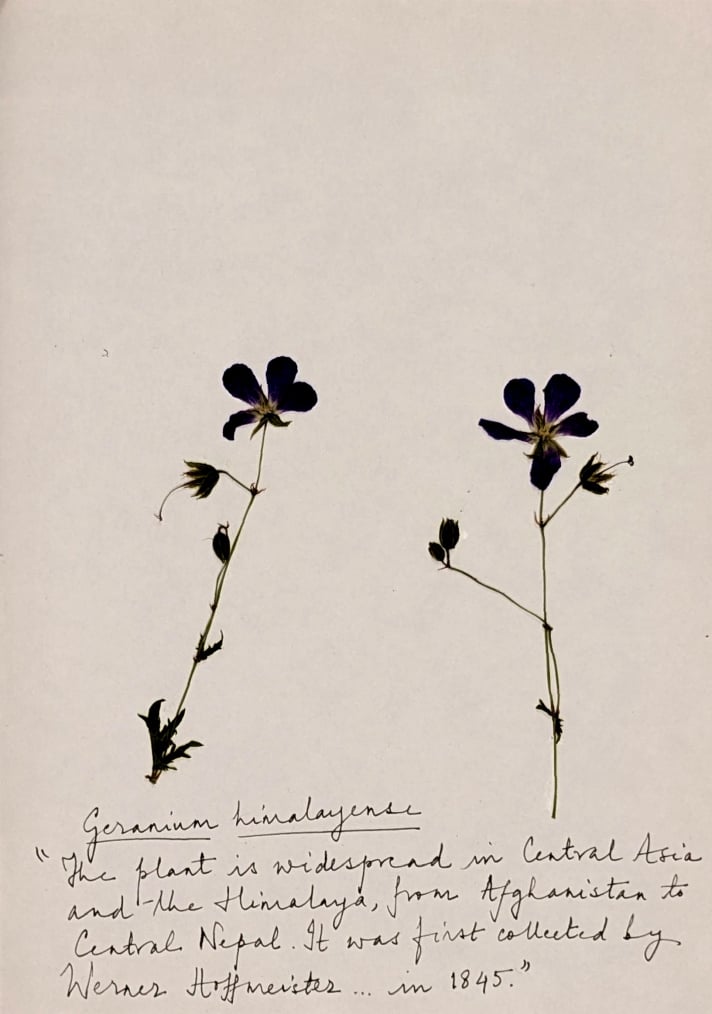 Geranium himalayense
"The plant is widespread in Central Asia
and the Himalaya, from Afghanistan to
Central Nepal. It was first collected by
Werner Hoffmeister ... in 1845."